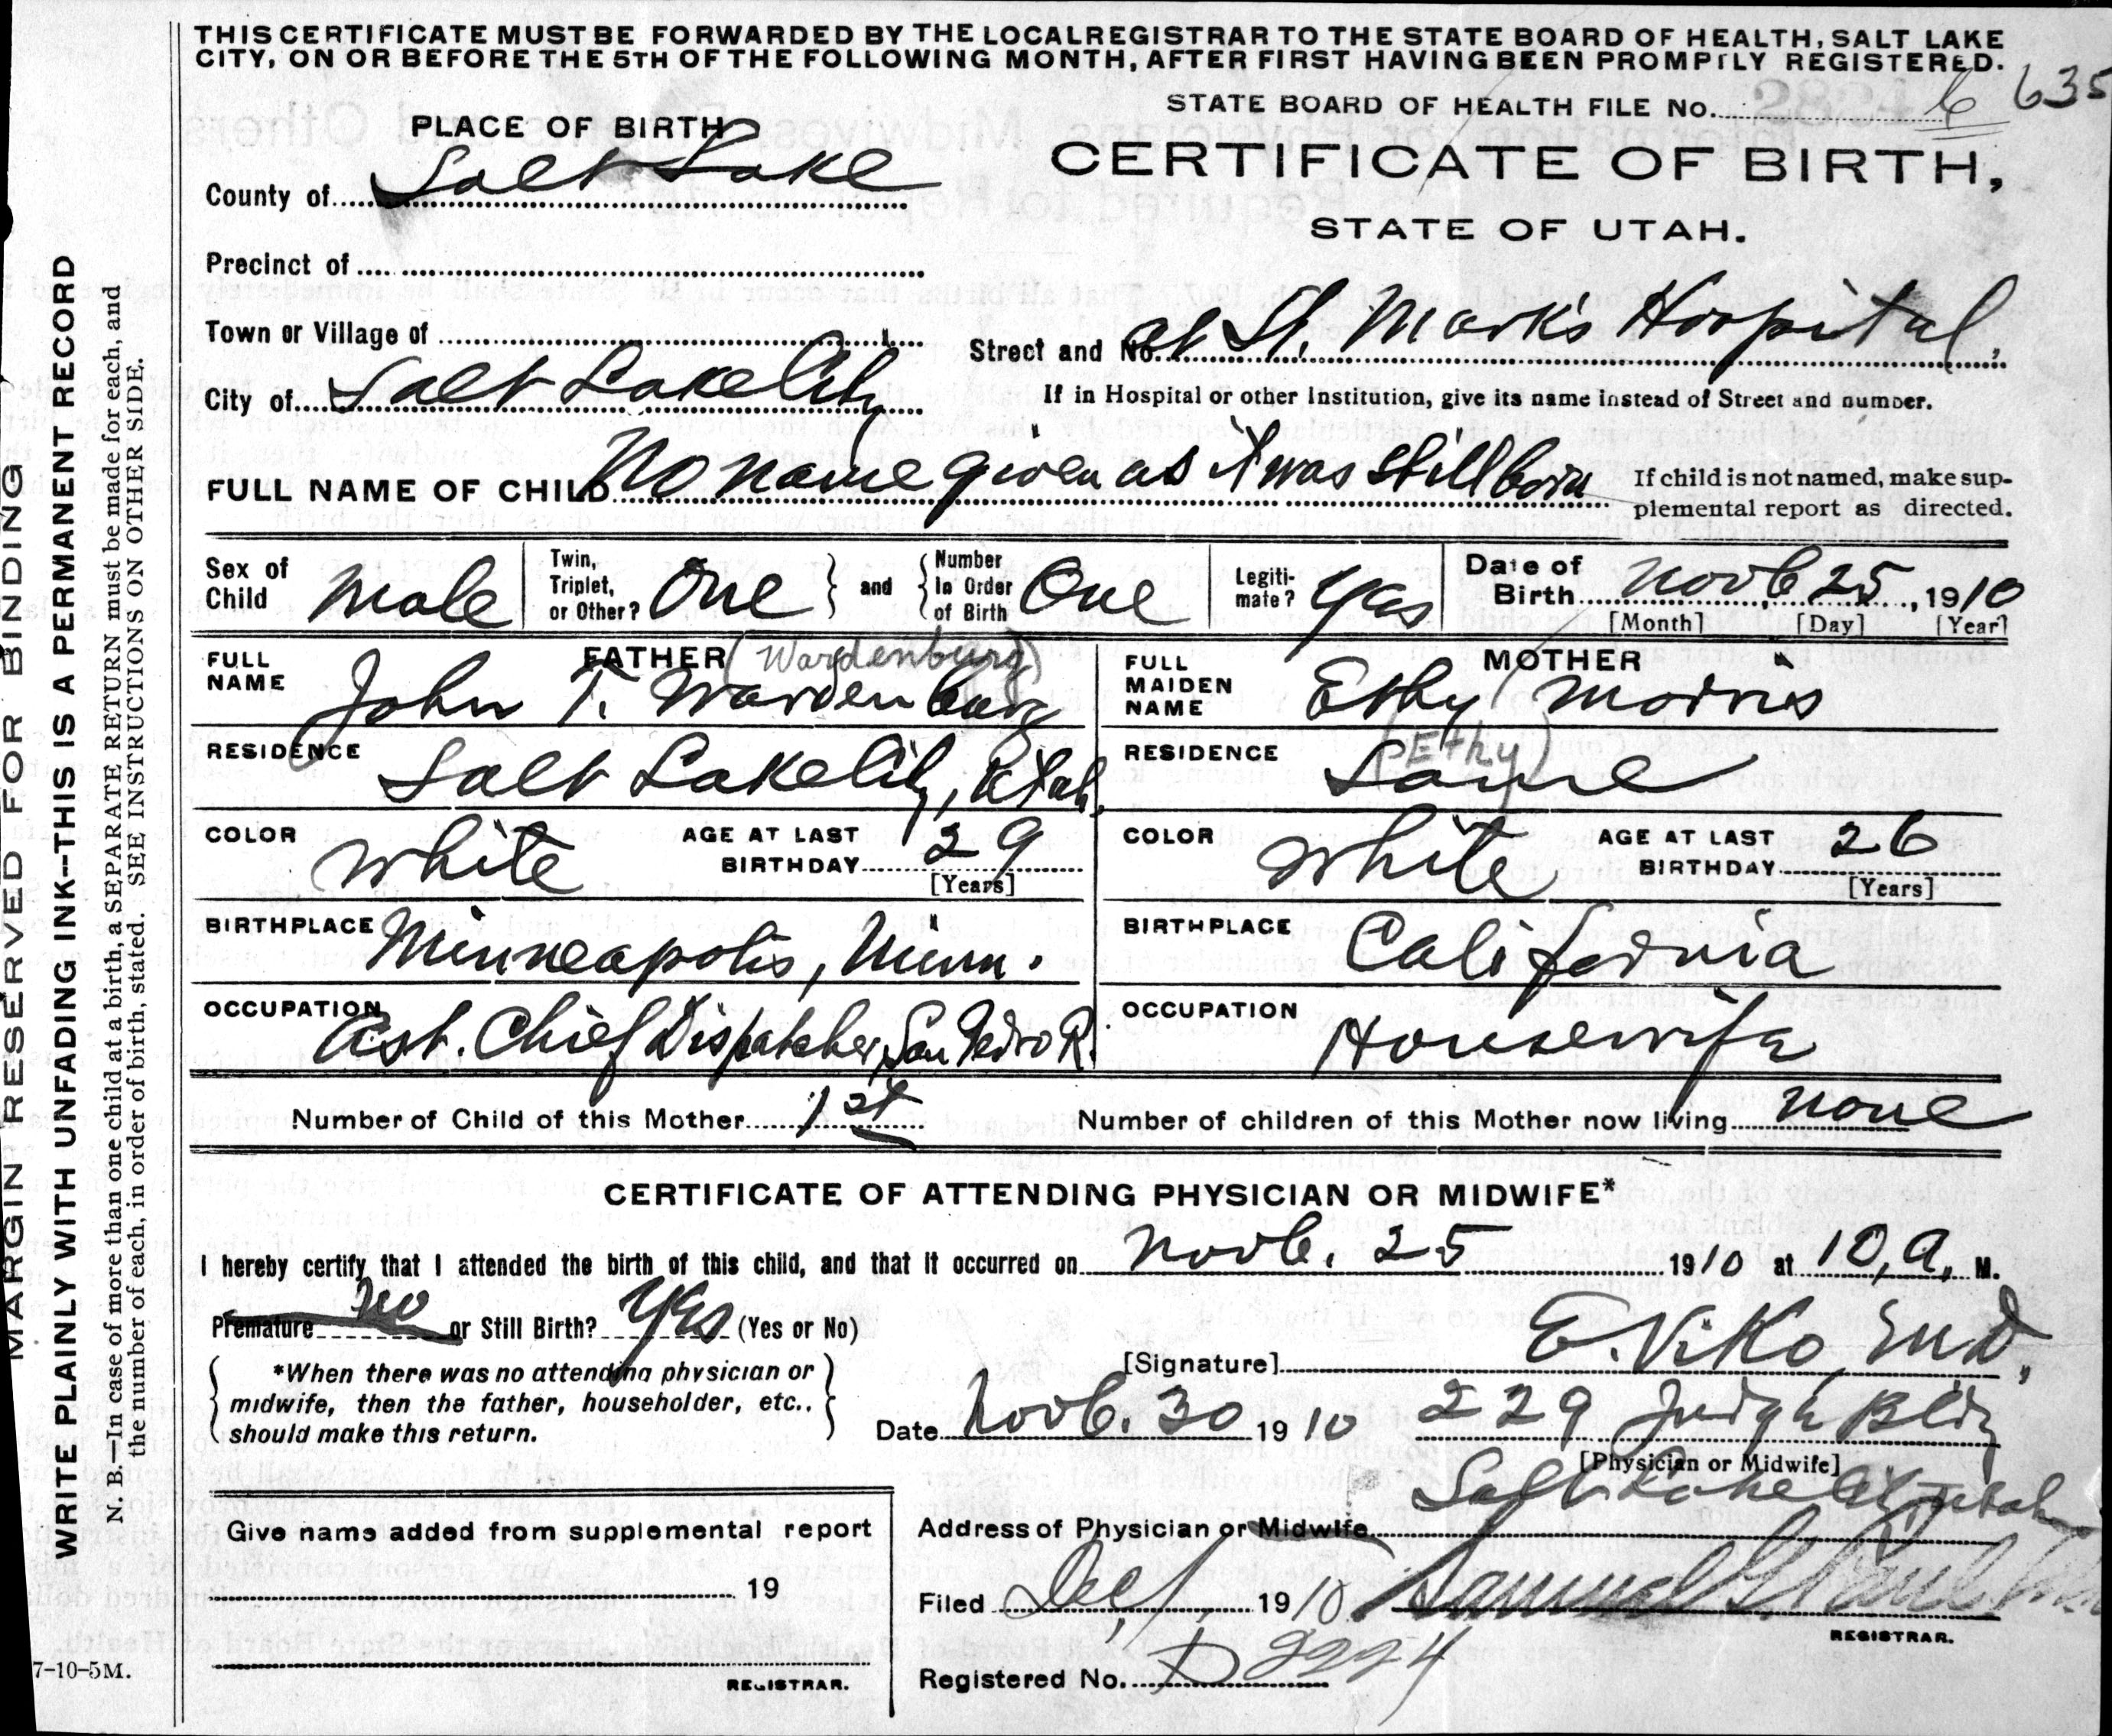 THIS CERTIFICATE MUST BE FORWARDED BY THE LOCAL REGISTRAR TO THE STATE BOARD OF HEALTH, SALT LAKE
CITY, ON OR BEFORE THE 5TH OF THE FOLLOWING MONTH, AFTER FIRST HAVING BEEN PROMPTLY REGISTERED.
STATE BOARD OF HEALTH FILE No. 6 635
PLACE OF BIRTH
CERTIFICATE OF BIRTH,
County of Salt Lake
STATE OF UTAH.
Precinct of
Town or Village of
Street and No. at St. Mark's Hospital,
City of Salt Lake City
If in Hospital or other Institution, give its name instead of Street and number.
FULL NAME OF CHILD No name given as it was Still born
If child is not named, make sup-
plemental report as directed.
Sex of Child Male
Twin, Triplet, or Other? One
and
Number in Order of Birth One
Legiti-mate? Yes
Date of Birth Novb 25, 1910
[Month] [Day] [Year]
FATHER (Wardenburg)
FULL NAME John T. Wardenburg
MOTHER
FULL MAIDEN NAME Ethy Morris
(Ethy)
RESIDENCE Salt Lake City, Utah.
RESIDENCE Same
COLOR White
AGE AT LAST BIRTHDAY 29
[Years]
COLOR White
AGE AT LAST BIRTHDAY 26
[Years]
BIRTHPLACE Minneapolis, Minn.
BIRTHPLACE California
OCCUPATION Ast. Chief Dispatcher, San Pedro R.
OCCUPATION Housewife
Number of Child of this Mother 1st
Number of children of this Mother now living none
CERTIFICATE OF ATTENDING PHYSICIAN OR MIDWIFE*
I hereby certify that I attended the birth of this child, and that it occurred on Novb. 25 1910 at 10, A. M.
Premature no or Still Birth? Yes (Yes or No)
*When there was no attending physician or
midwife, then the father, householder, etc.,
should make this return.
[Signature] E. Viko, M.D.
Date Novb. 30 1910
229 Judge Bldg
[Physician or Midwife]
Salt Lake City, Utah
Address of Physician or Midwife
Give name added from supplemental report
19
REGISTRAR.
Filed Dec 1, 1910
Samuel G. Paul
REGISTRAR.
Registered No. D 2224
MARGIN RESERVED FOR BINDING
WRITE PLAINLY WITH UNFADING INK--THIS IS A PERMANENT RECORD
N. B.—In case of more than one child at a birth, a SEPARATE RETURN must be made for each, and
the number of each, in order of birth, stated. SEE INSTRUCTIONS ON OTHER SIDE.
7-10-5M.